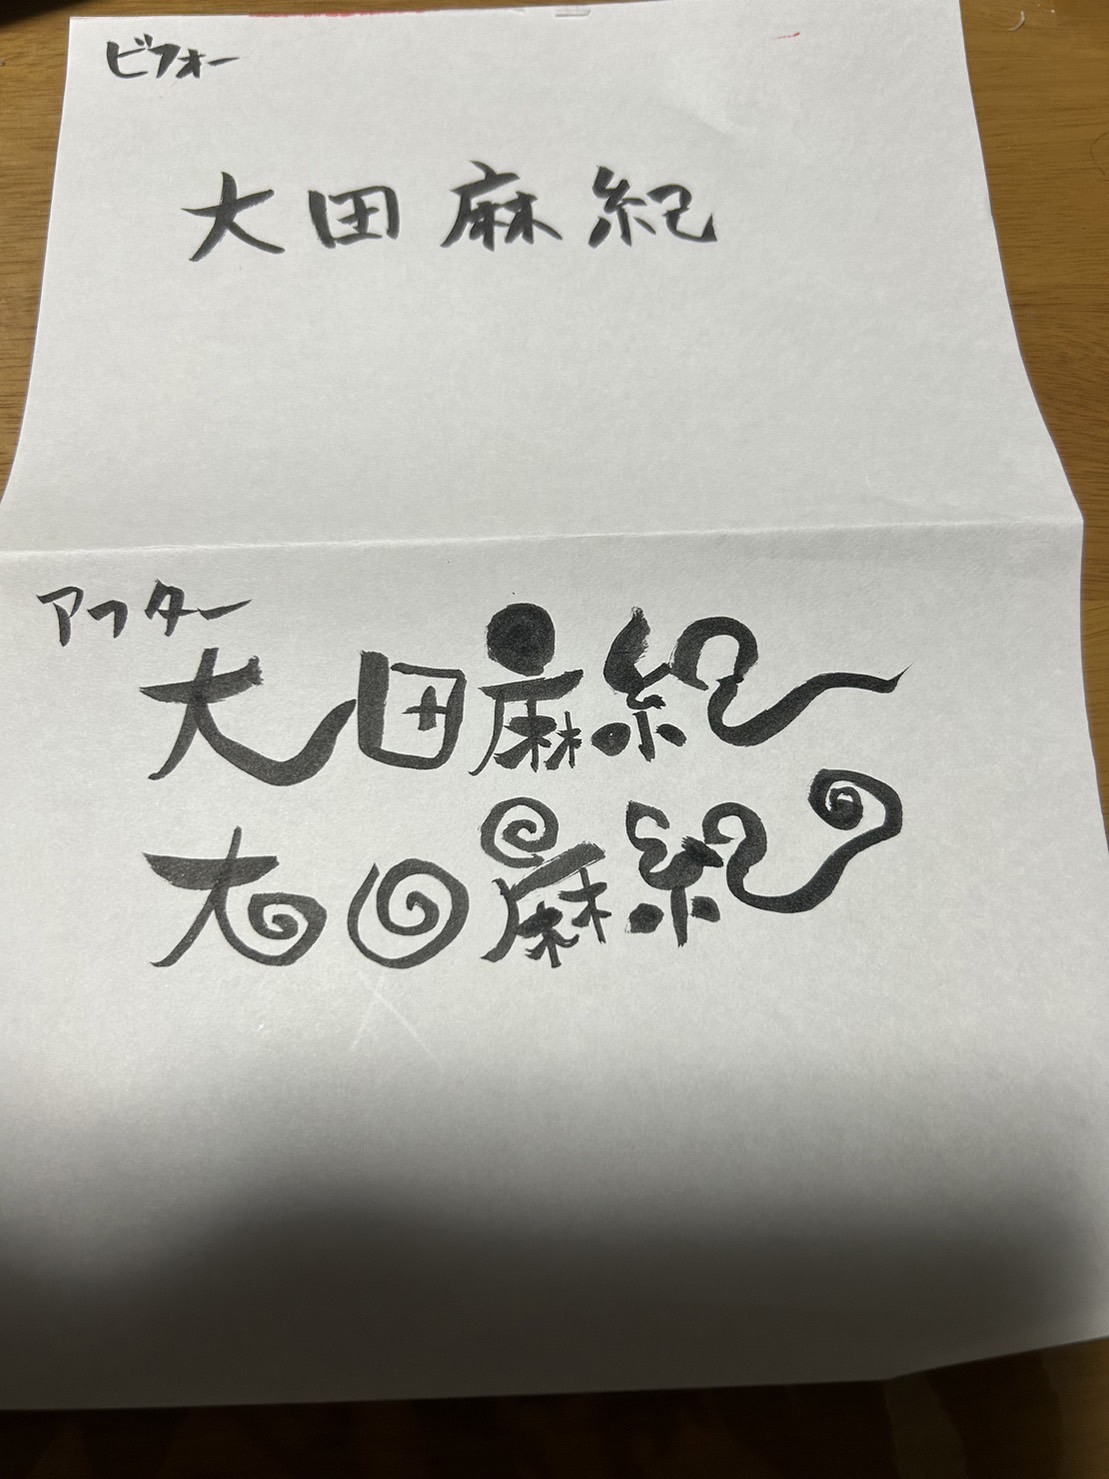 ビフォー
大田麻紀
アフター
大田麻紀
大田麻紀